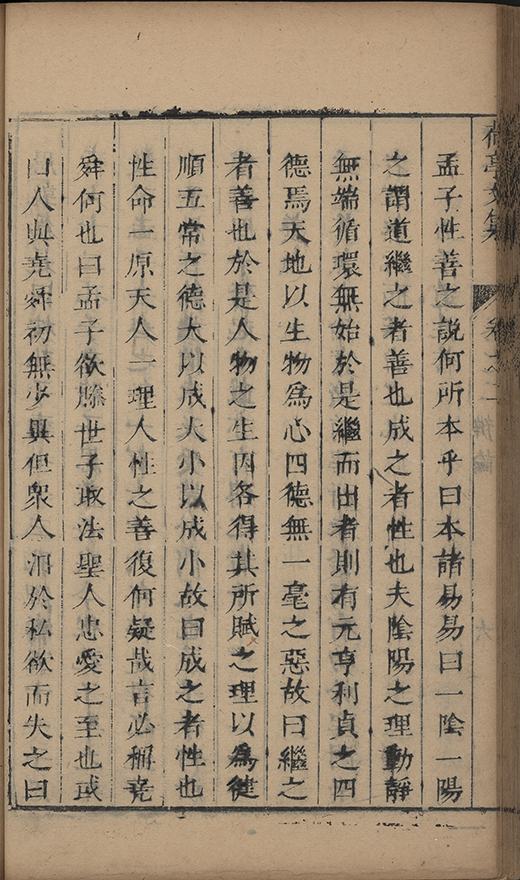 荷亭文集 卷之二 辨論 六
孟子性善之說何所本乎曰本諸易易曰一陰一陽
之謂道繼之者善也成之者性也夫陰陽之理動靜
無端循環無始於是繼而出者則有元亨利貞之四
德焉天地以生物爲心四德無一毫之惡故曰繼之
者善也於是人物之生因各得其所賦之理以爲健
順五常之德大以成大小以成小故曰成之者性也
性命一原天人一理人性之善復何疑哉言必稱堯
舜何也曰孟子欲滕世子取法聖人忠愛之至也或
曰人與堯舜初無少異但衆人汨於私欲而失之曰